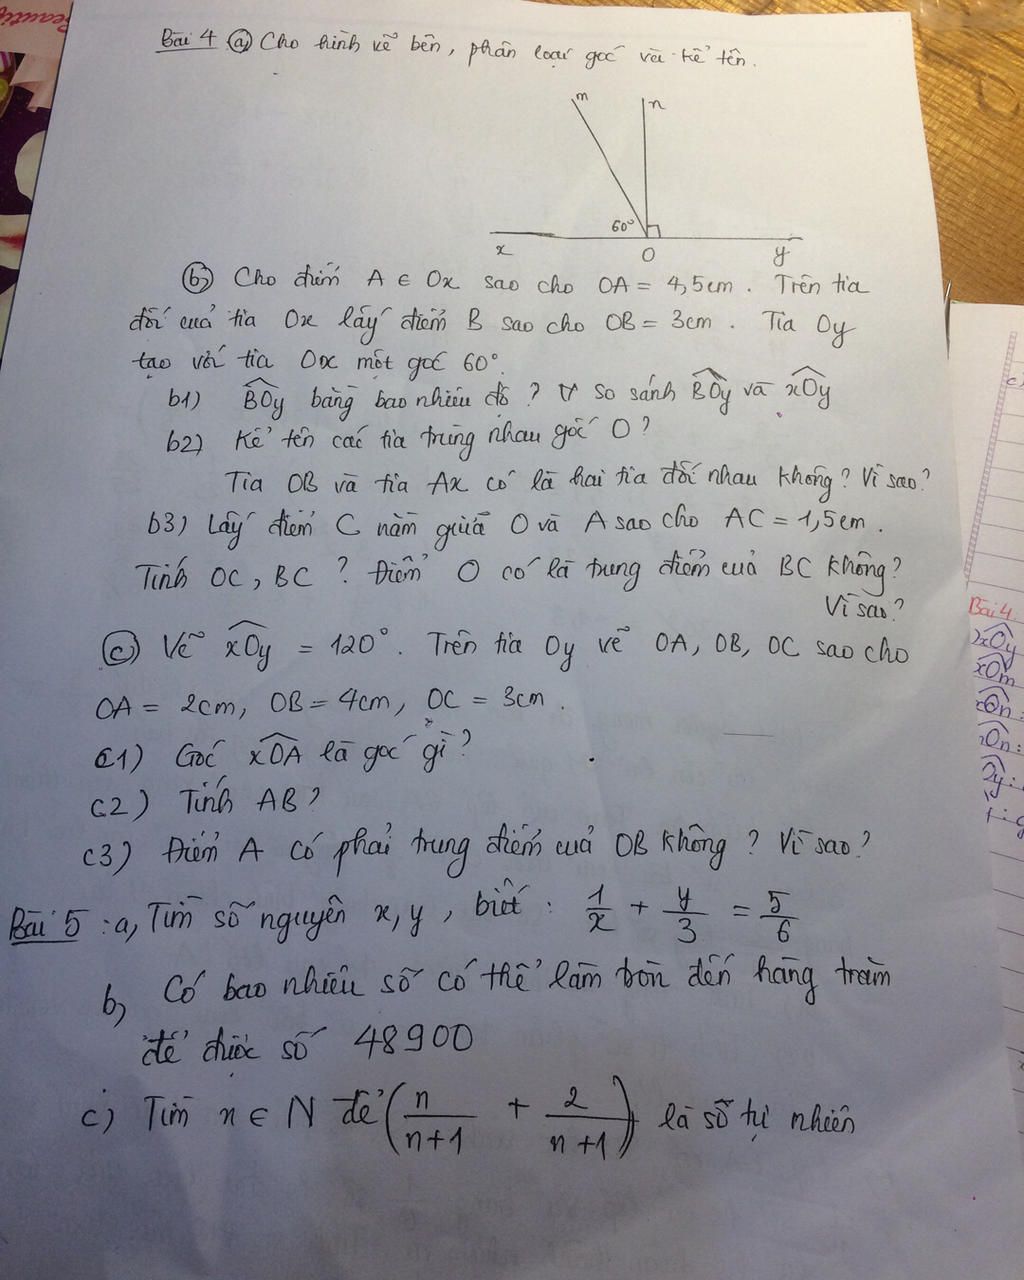 Bài 4 a) Cho hình vẽ bên, phân loại góc và kể tên.
m n
60°
x O y
b) Cho điểm A ∈ Ox sao cho OA = 4,5cm. Trên tia
đối của tia Ox lấy điểm B sao cho OB = 3cm. Tia Oy
tạo với tia Ox một góc 60°.
b1) BÔy bằng bao nhiêu độ? So sánh BÔy và xÔy
b2) Kể tên các tia trùng nhau gốc O?
Tia OB và tia Ax có là hai tia đối nhau không? Vì sao?
b3) Lấy điểm C nằm giữa O và A sao cho AC = 1,5cm.
Tính OC, BC? Điểm O có là trung điểm của BC không?
Vì sao?
c) Vẽ xÔy = 120°. Trên tia Oy vẽ OA, OB, OC sao cho
OA = 2cm, OB = 4cm, OC = 3cm.
c1) Góc xÔA là góc gì?
c2) Tính AB?
c3) Điểm A có phải trung điểm của OB không? Vì sao?
Bài 5: a, Tìm số nguyên x, y, biết: 1/x + y/3 = 5/6
b, Có bao nhiêu số có thể làm tròn đến hàng trăm
để được số 48900
c) Tìm n ∈ N để (n/(n+1) + 2/(n+1)) là số tự nhiên
Bài 4
xÔy
xÔm
xÔn